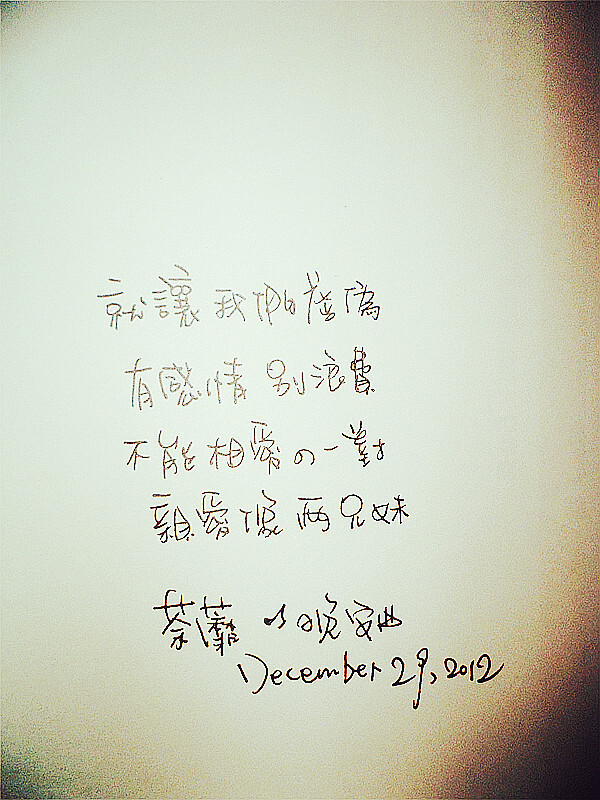 就讓我們虛偽
有感情別浪費
不能相愛の一對
親愛像兩兄妹
荼蘼 晚安
December 29, 2012